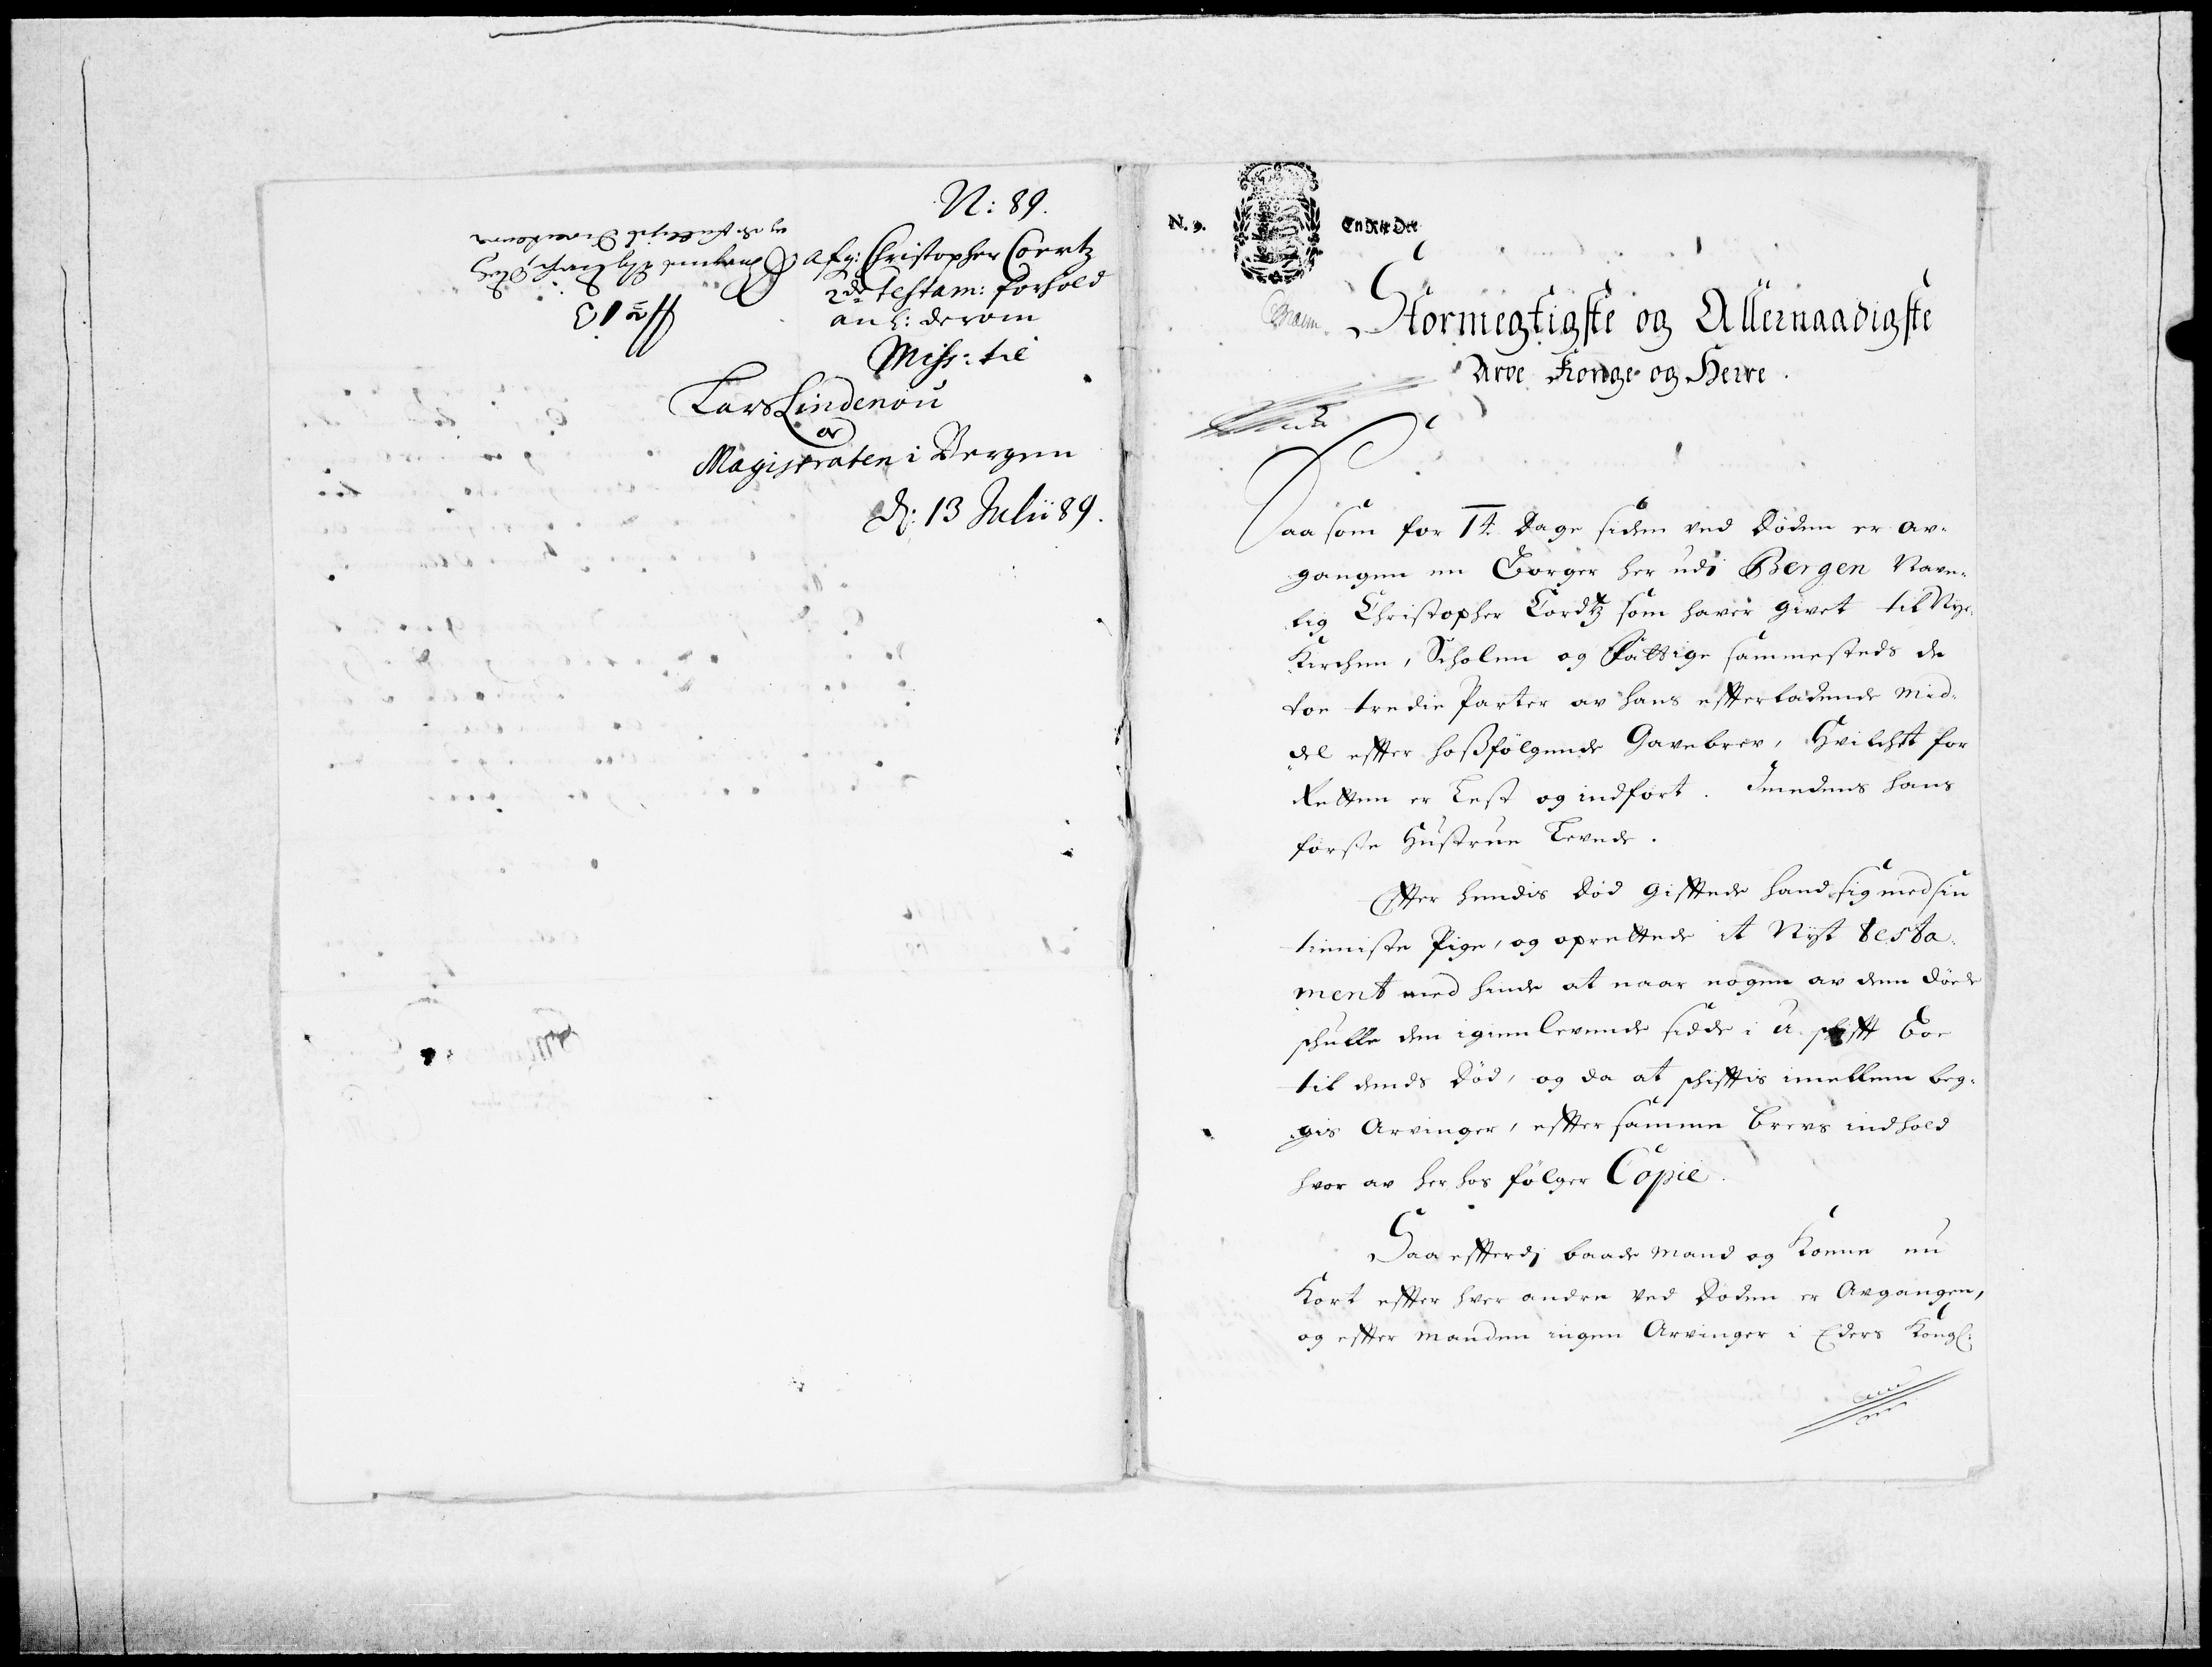 N: 89.
afg: Christopher Coertz
2de testam: forhold
anl: derom
Miss: til
Lars Lindenou
oc
Magistraten i Bergen
d: 13 Julii 89.
N. 9.
En Rix Dlr
Stormegtigste og Allernaadigste
Arve Konge og Herre.
Saasom for 14 Dage siden ved Döden er av-
gangen en Borger her udi Bergen Navn-
lig Christopher Cordtz som haver givet til Nye
Kirchen, Scholen og Fattige sammesteds de
toe tredie Parter av hans effterladende Mid-
del effter hosfölgende Gavebrev, Hvilchet for
Retten er Lest og indfört. Imedens hans
förste Hustrue Levede.
Effter hendis Död gifftede hand sig med sin
tieniste Pige, og oprettede it Nyt testa-
ment med hende at naar nogen av dem döede
schulle den igienlevende sidde i u-schifft boe
til dends Död, og da at schifftis imellem beg-
gis Arvinger, effter samme brevs indhold
hvor av her hos fölger Copie.
Saa effterdj baade Mand og Konne nu
Kort effter hver andre ved Döden er Avgangen,
og effter manden ingen Arvinger i Eders Kongl: